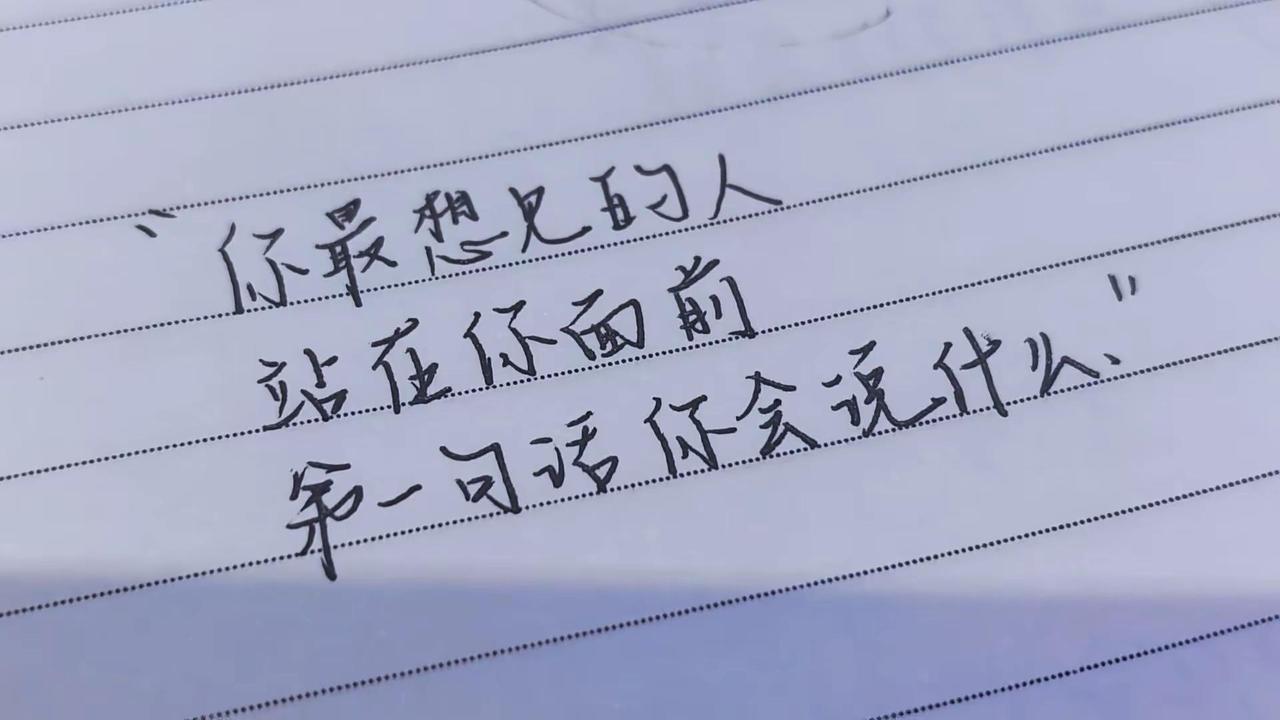 “你最想见的人
站在你面前
第一句话你会说什么”